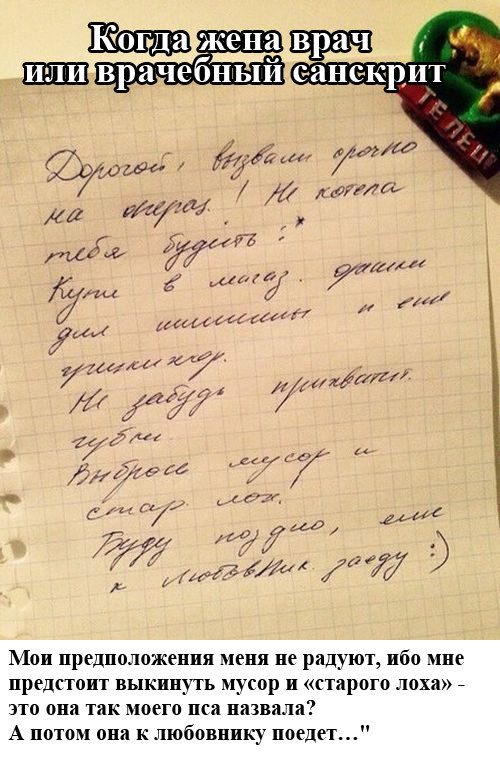 Когда жена врач
или врачебный санскрит
ТЕЛЕЦ
Дорогой, вызвали срочно
на операц! Не хотела
тебя будить :*
Купи в магаз.
для и еще
Не забудь прихватит.
губки
Выброси мусор и
стар. лох!
Буду поздно, еще
к любовник заеду :)
Мои предположения меня не радуют, ибо мне
предстоит выкинуть мусор и «старого лоха» -
это она так моего пса назвала?
А потом она к любовнику поедет…"